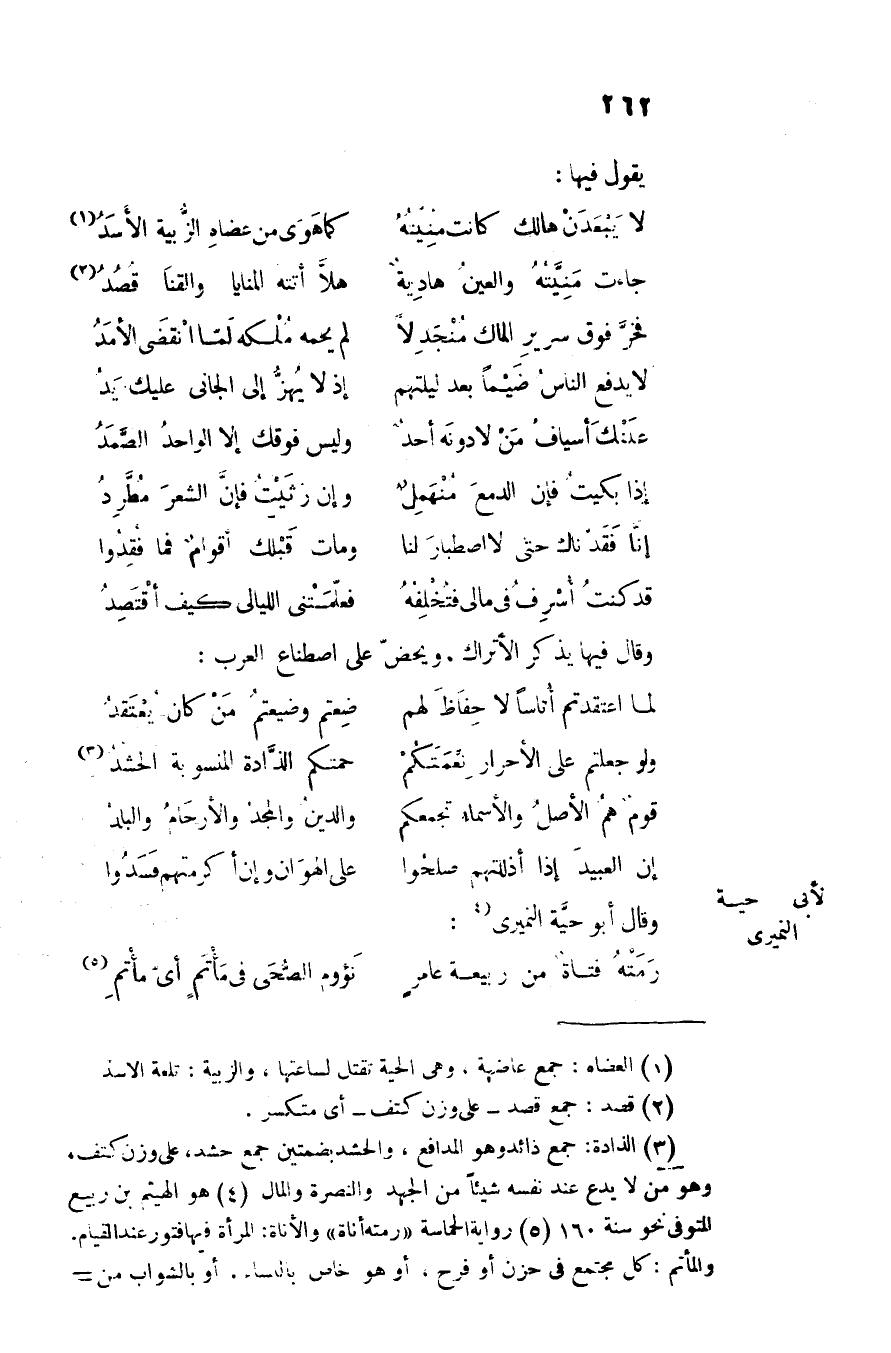 ٢٦٢
يقول فيها :
لا يَبْعَدَنْ هالك كانت مَنِيَّتهُ كما هَوَى من عضاه الزُّبية الأَسدُ (١)
جاءت مَنِيَّتهُ والعينُ هاديةٌ هلاَّ أتته المنايا والقنا قُصُدُ (٢)
فخرَّ فوق سرير الملك مُنْجَدِلاً لم يحمه مُلْكه لَمّا انْقضَى الأمَدُ
لا يدفع الناسُ ضَيْماً بعد ليلتهم إذ لا يُهزُّ إلى الجانى عليك يَدُ
علَتْكَ أسيافُ مَنْ لا دونَه أحدٌ وليس فوقك إلا الواحدُ الصَّمَدُ
إذا بكيتُ فإن الدمعَ مُنْهَمِلٌ وإن رَثَيْتُ فإنَّ الشعرَ مُطَّرِدُ
إنَّا فَقَدْناك حتى لا اصطبارَ لنا ومات قَبْلك أقوامٌ فما فُقِدُوا
قد كنتُ أُسْرِفُ فى مالى فتُخْلِفهُ فعلَّمَتْنى الليالى كيف أقْتصِدُ
وقال فيها يذكر الأتراك . ويحضّ على اصطناع العرب :
لما اعتقدتم أُناساً لا حِفاظَ لهم ضِعتم وضيعتمُ مَنْ كان يُعْتَقدُ
ولو جعلتم على الأحرار نِعْمَتَكُمْ حمتكم الذَّادة المنسوبة الحشدُ (٣)
قومٌ همُ الأصلُ والأسماء تجمعكم والدينُ والمجدُ والأرحَامُ والبلدُ
إن العبيدَ إذا أذللتهم صلحُوا على الهوَان وإن أكرمتهم فَسَدُوا
لأبى حية
النميرى
وقال أبو حيَّة النميرى (٤) :
رَمَتْهُ فتاةٌ من ربيعة عامرٍ نَؤوم الضُّحَى فى مَأْتَمٍ أىّ مأْتمِ (٥)
(١) العضاه : جمع عاضهة ، وهى الحية تقتل لساعتها ، والزبية : تلعة الاسد
(٢) قصد : جمع قصد – على وزن كتف – أى متكسر .
(٣) الذادة: جمع ذائد وهو المدافع ، والحشد بضمتين جمع حشد، على وزن كتف،
وهو مَن لا يدع عند نفسه شيئاً من الجهد والنصرة والمال (٤) هو الهيثم بن ربيع
المتوفى نحو سنة ١٦٠ (٥) رواية الحماسة «رمته أناة» والأناة: المرأة فيها فتور عند القيام.
والمأتم : كل مجتمع فى حزن أو فرح ، أو هو خاص بالنساء . أو بالشواب من =